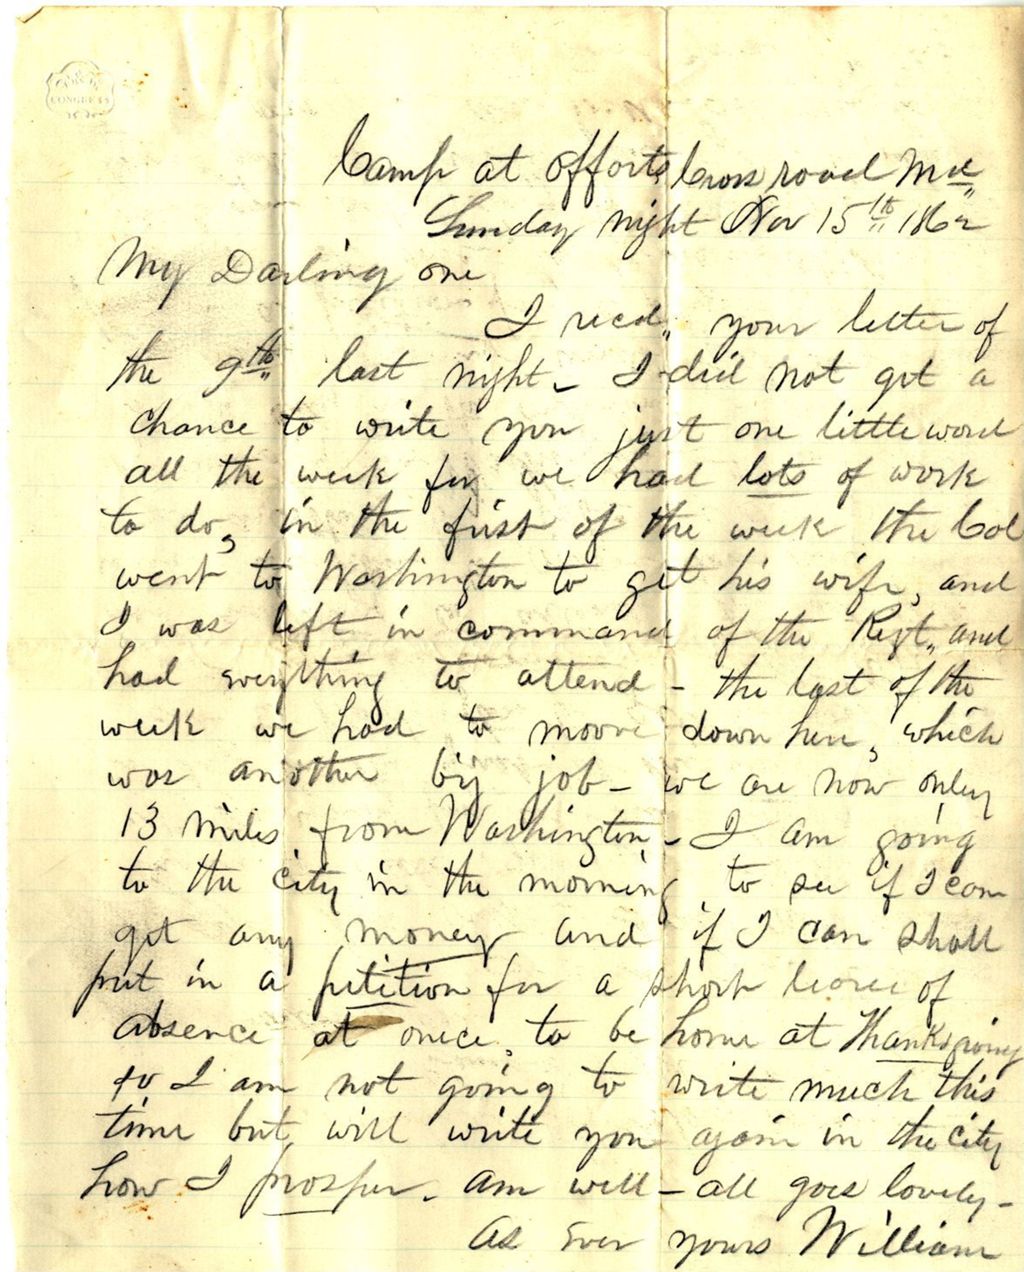 CONGRESS
Camp at Offorts Cross road Md
Sunday night Nov 15th 1862
My Darling one
I recd, your letter of
the 9th last night - I did not get a
chance to write you just one little word
all the week for we had lots of work
to do, in the first of the week the Col
went to Washington to get his wife, and
I was left in command of the Regt, and
had everything to attend - the last of the
week we had to moove down here, which
was another big job - we are now only
13 miles from Washington - I am going
to the city in the morning to see if I can
get any money and if I can shall
put in a petition for a short leave of
absence at onece, to be home at Thanksgiving
so I am not going to write much this
time but, will write you again in the city
how I prosper. am well - all goes lovely -
As ever yours William